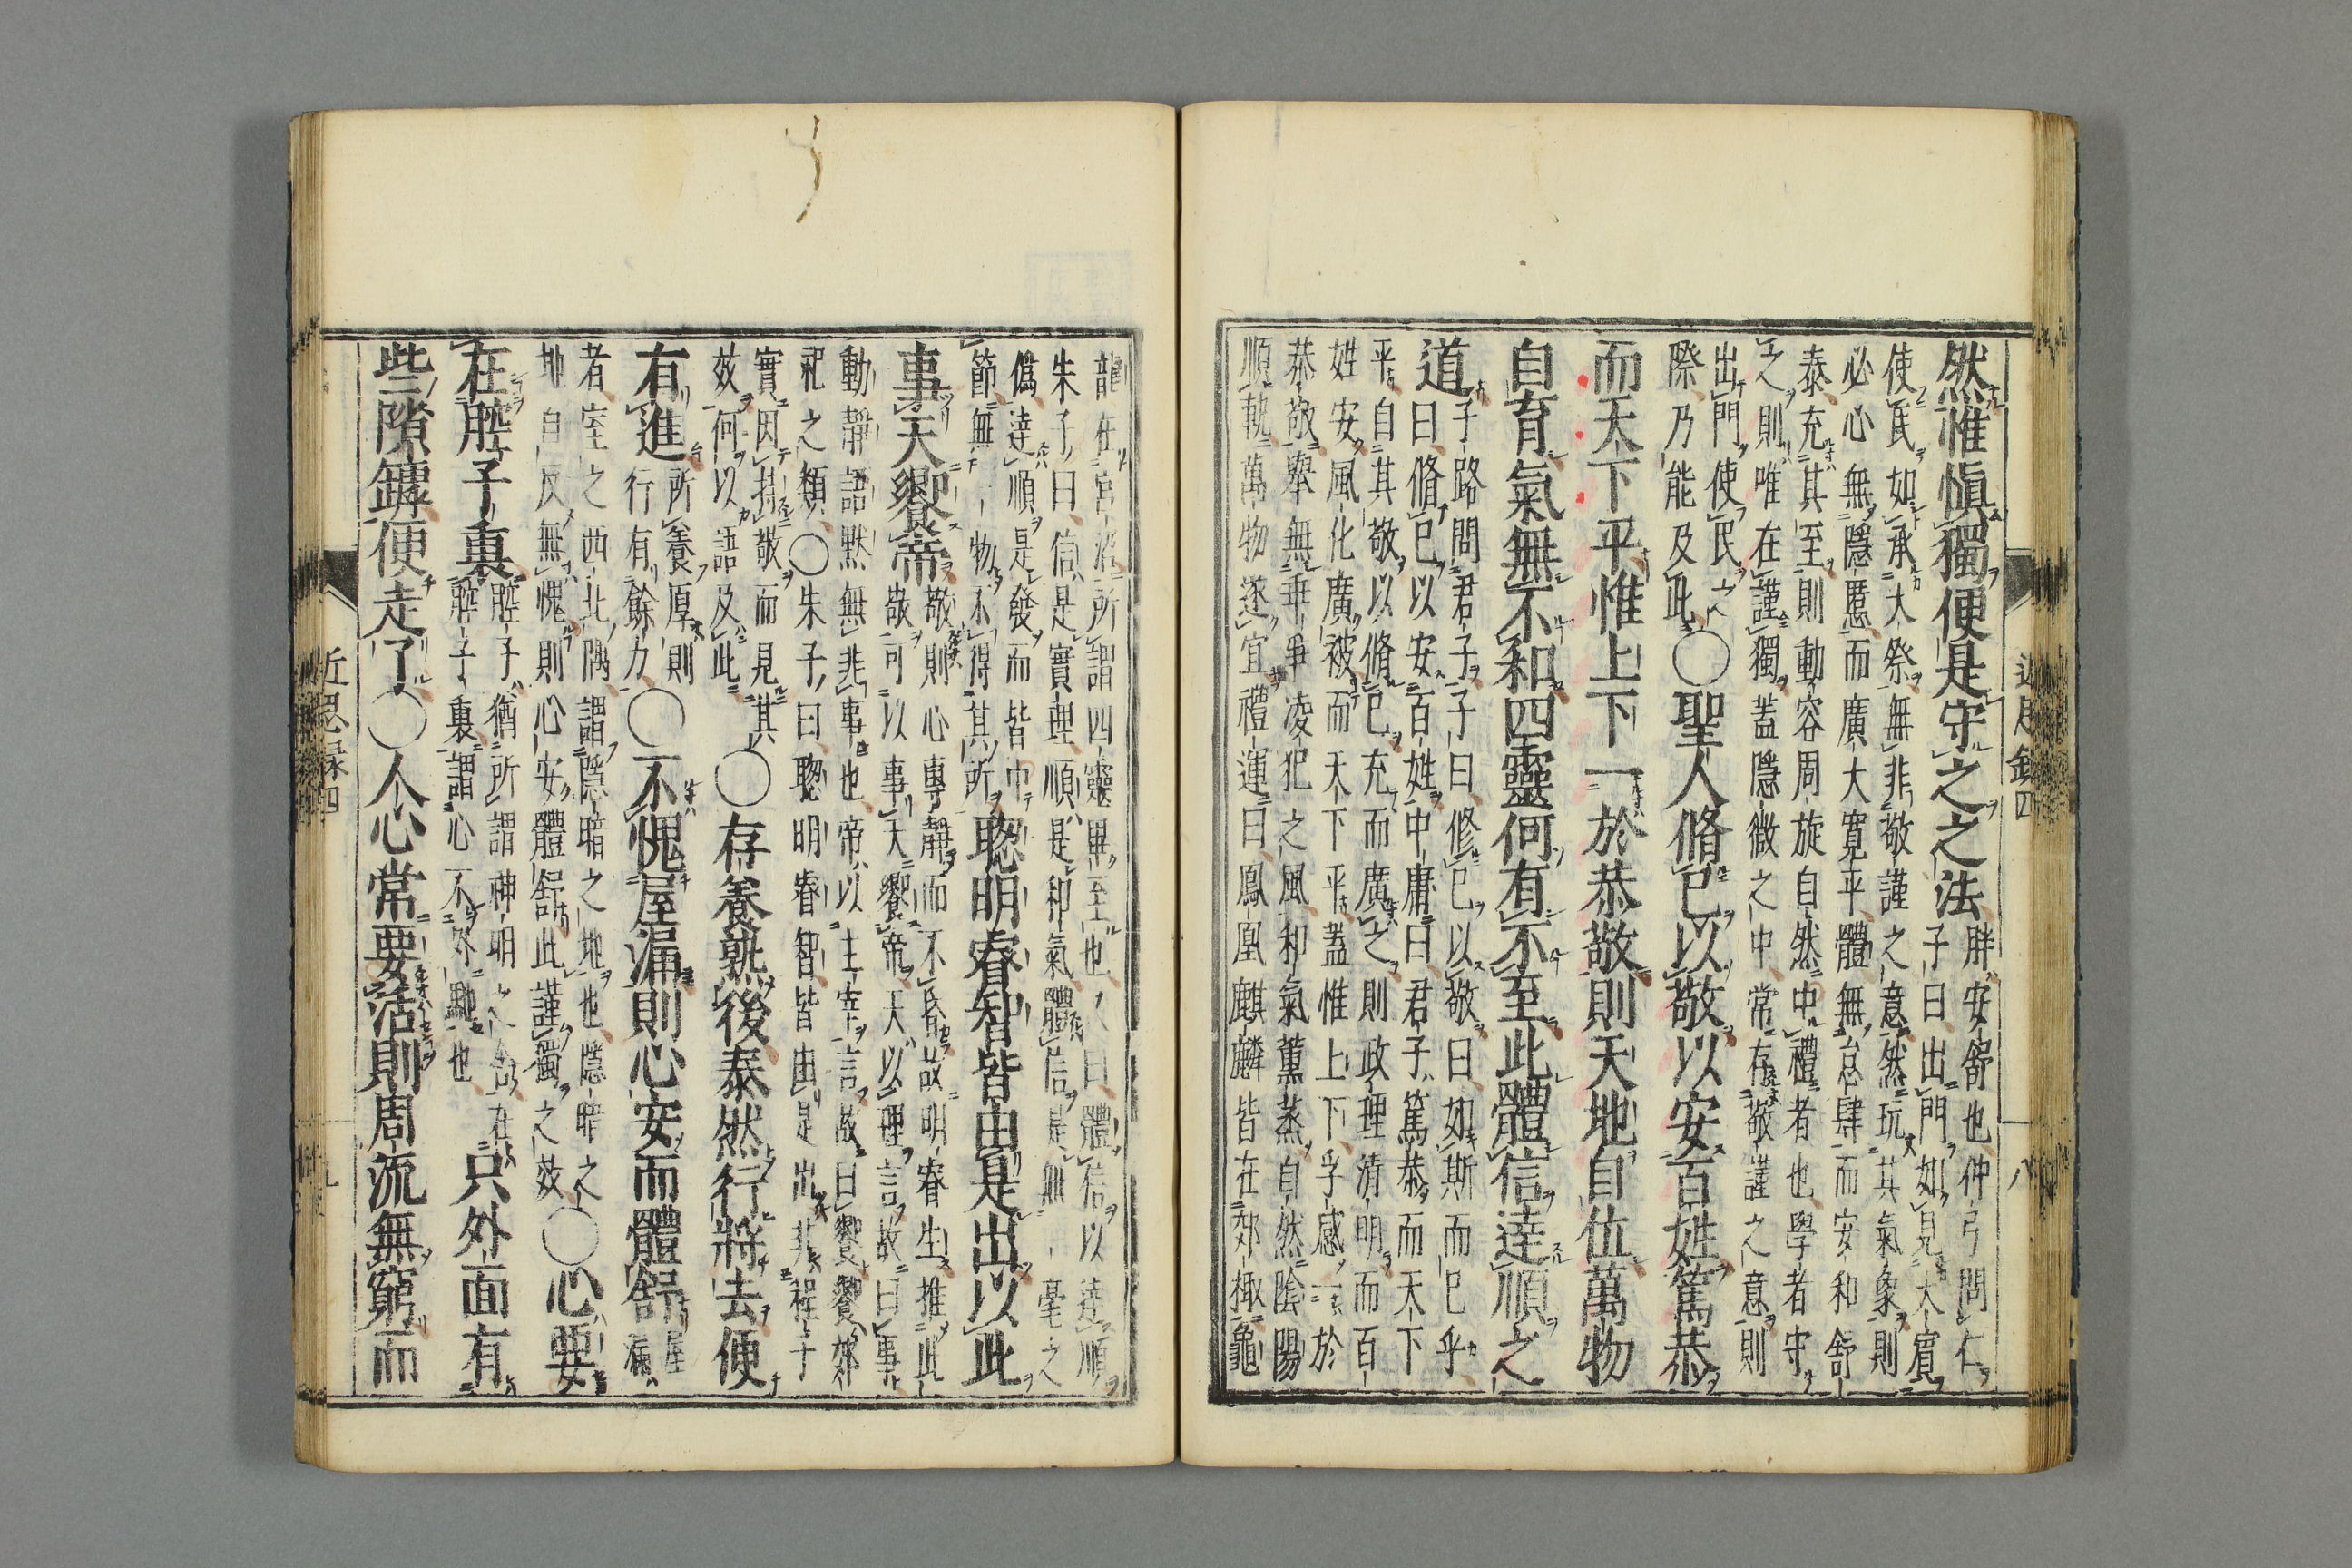 然惟慎獨便是守之之法胖安舒也仲弓問仁
子曰出門如見大賓
使民如承大祭無非敬謹之意然玩其氣象則
必心無隱慝而廣大寬平體無怠肆而安和舒
泰充其至則動容周旋自然中禮者也學者守
之則唯在謹獨蓋隱微之中常存敬謹之意則
出門使民之
際乃能及此○聖人脩已以敬以安百姓篤恭
而天下平惟上下一於恭敬則天地自位萬物
自育氣無不和四靈何有不至此體信達順之
道子路問君子子曰修已以敬曰如斯而已乎
曰脩已以安百姓中庸曰君子篤恭而天下
平自其敬以脩已充而廣之則政理清明而百
姓安風化廣被而天下平蓋惟上下孚感一於
恭敬舉無乖爭凌犯之風和氣薰蒸自然陰陽
順軌萬物遂宜禮運曰鳳凰麒麟皆在郊棷龜
龍在宮沼所謂四靈畢至也又曰體信以達順
朱子曰信是實理順是和氣體信是無一毫之
僞達順是發而皆中
節無一物不得其所聰明睿智皆由是出以此
事天饗帝敬則心專靜而不昏故明睿生推此
敬可以事天饗帝天以理言故曰事
動靜語默無非事也帝以主宰言故曰饗饗郊
祀之類○朱子曰聰明睿智皆由是出非程子
實因持敬而見其
效何以語及此○存養熟後泰然行將去便
有進所養厚則
行有餘力○不愧屋漏則心安而體舒屋漏
者室之西北隅謂隱暗之地也隱暗之
地自反無愧則心安體舒此謹獨之效○心要
在腔子裏腔子猶所謂神明之舍在
腔子裏謂心不外馳也只外面有
些隙罅便走了○人心常要活則周流無窮而
近思錄四
八
近思錄四
九